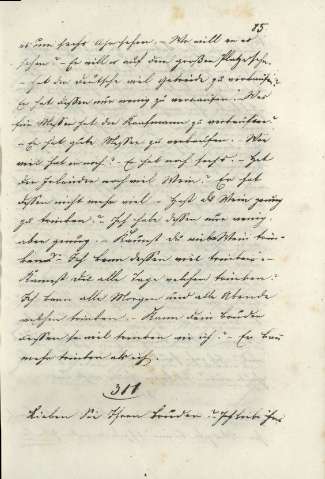 85
er um sechs Uhr sehen. – Wo will er es
sehen? – Er will es auf dem großen Platze sehen.
– Hat der Deutsche viel Getreide zu verkaufen?
Er hat dessen nur wenig zu verkaufen. Was
für Messer hat der Kaufmann zu verkaufen?
– Er hat gute Messer zu verkaufen. Wie
viel hat er noch? – Er hat noch sechs. – Hat
der Irländer noch viel Wein? – Er hat
dessen nicht mehr viel. – Hast du Wein genug
zu trinken? – Ich habe dessen nur wenig,
aber genug. – Kannst du viel Wein trin-
ken? – Ich kann dessen viel trinken. –
Kannst du alle Tage welchen trinken?
Ich kann alle Morgen und alle Abende
welchen trinken. – Kann dein Bruder
dessen so viel trinken wie ich? – Er kann
mehr trinken als ich.
311
Lieben Sie Ihren Bruder? Ich liebe ihn